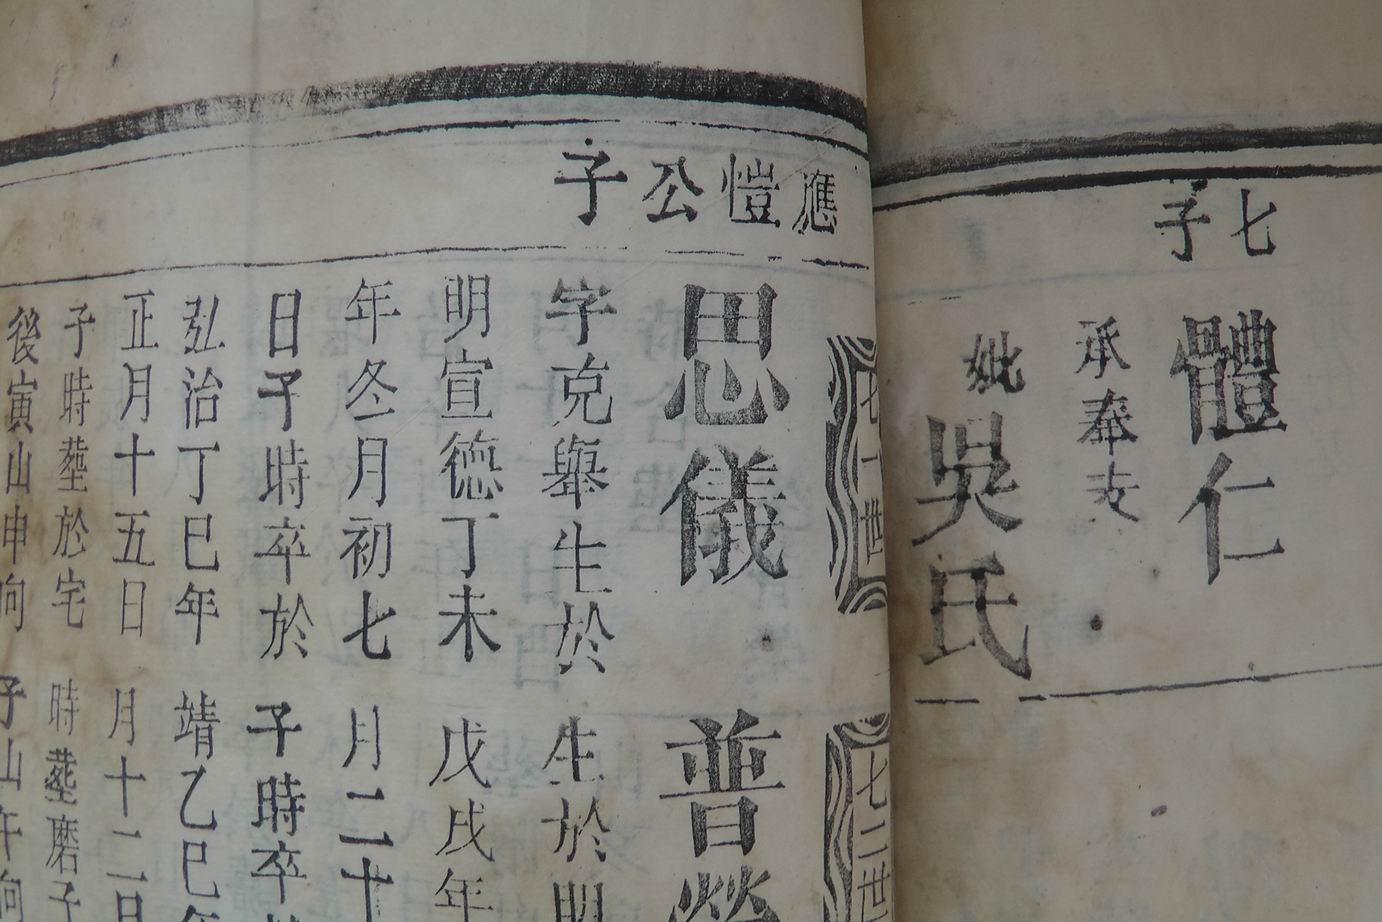 七子
體仁
承奉支
妣
吳氏
應愷公子
七一世
思儀
字克舉生於
明宣德丁未
年冬月初七
日子時卒於
弘治丁巳年
正月十五日
子時塟於宅
後寅山申向
七二世
普榮
生於明
戊戌年
月二十
子時卒
靖乙巳年
月十二日
時塟磨子
子山午向